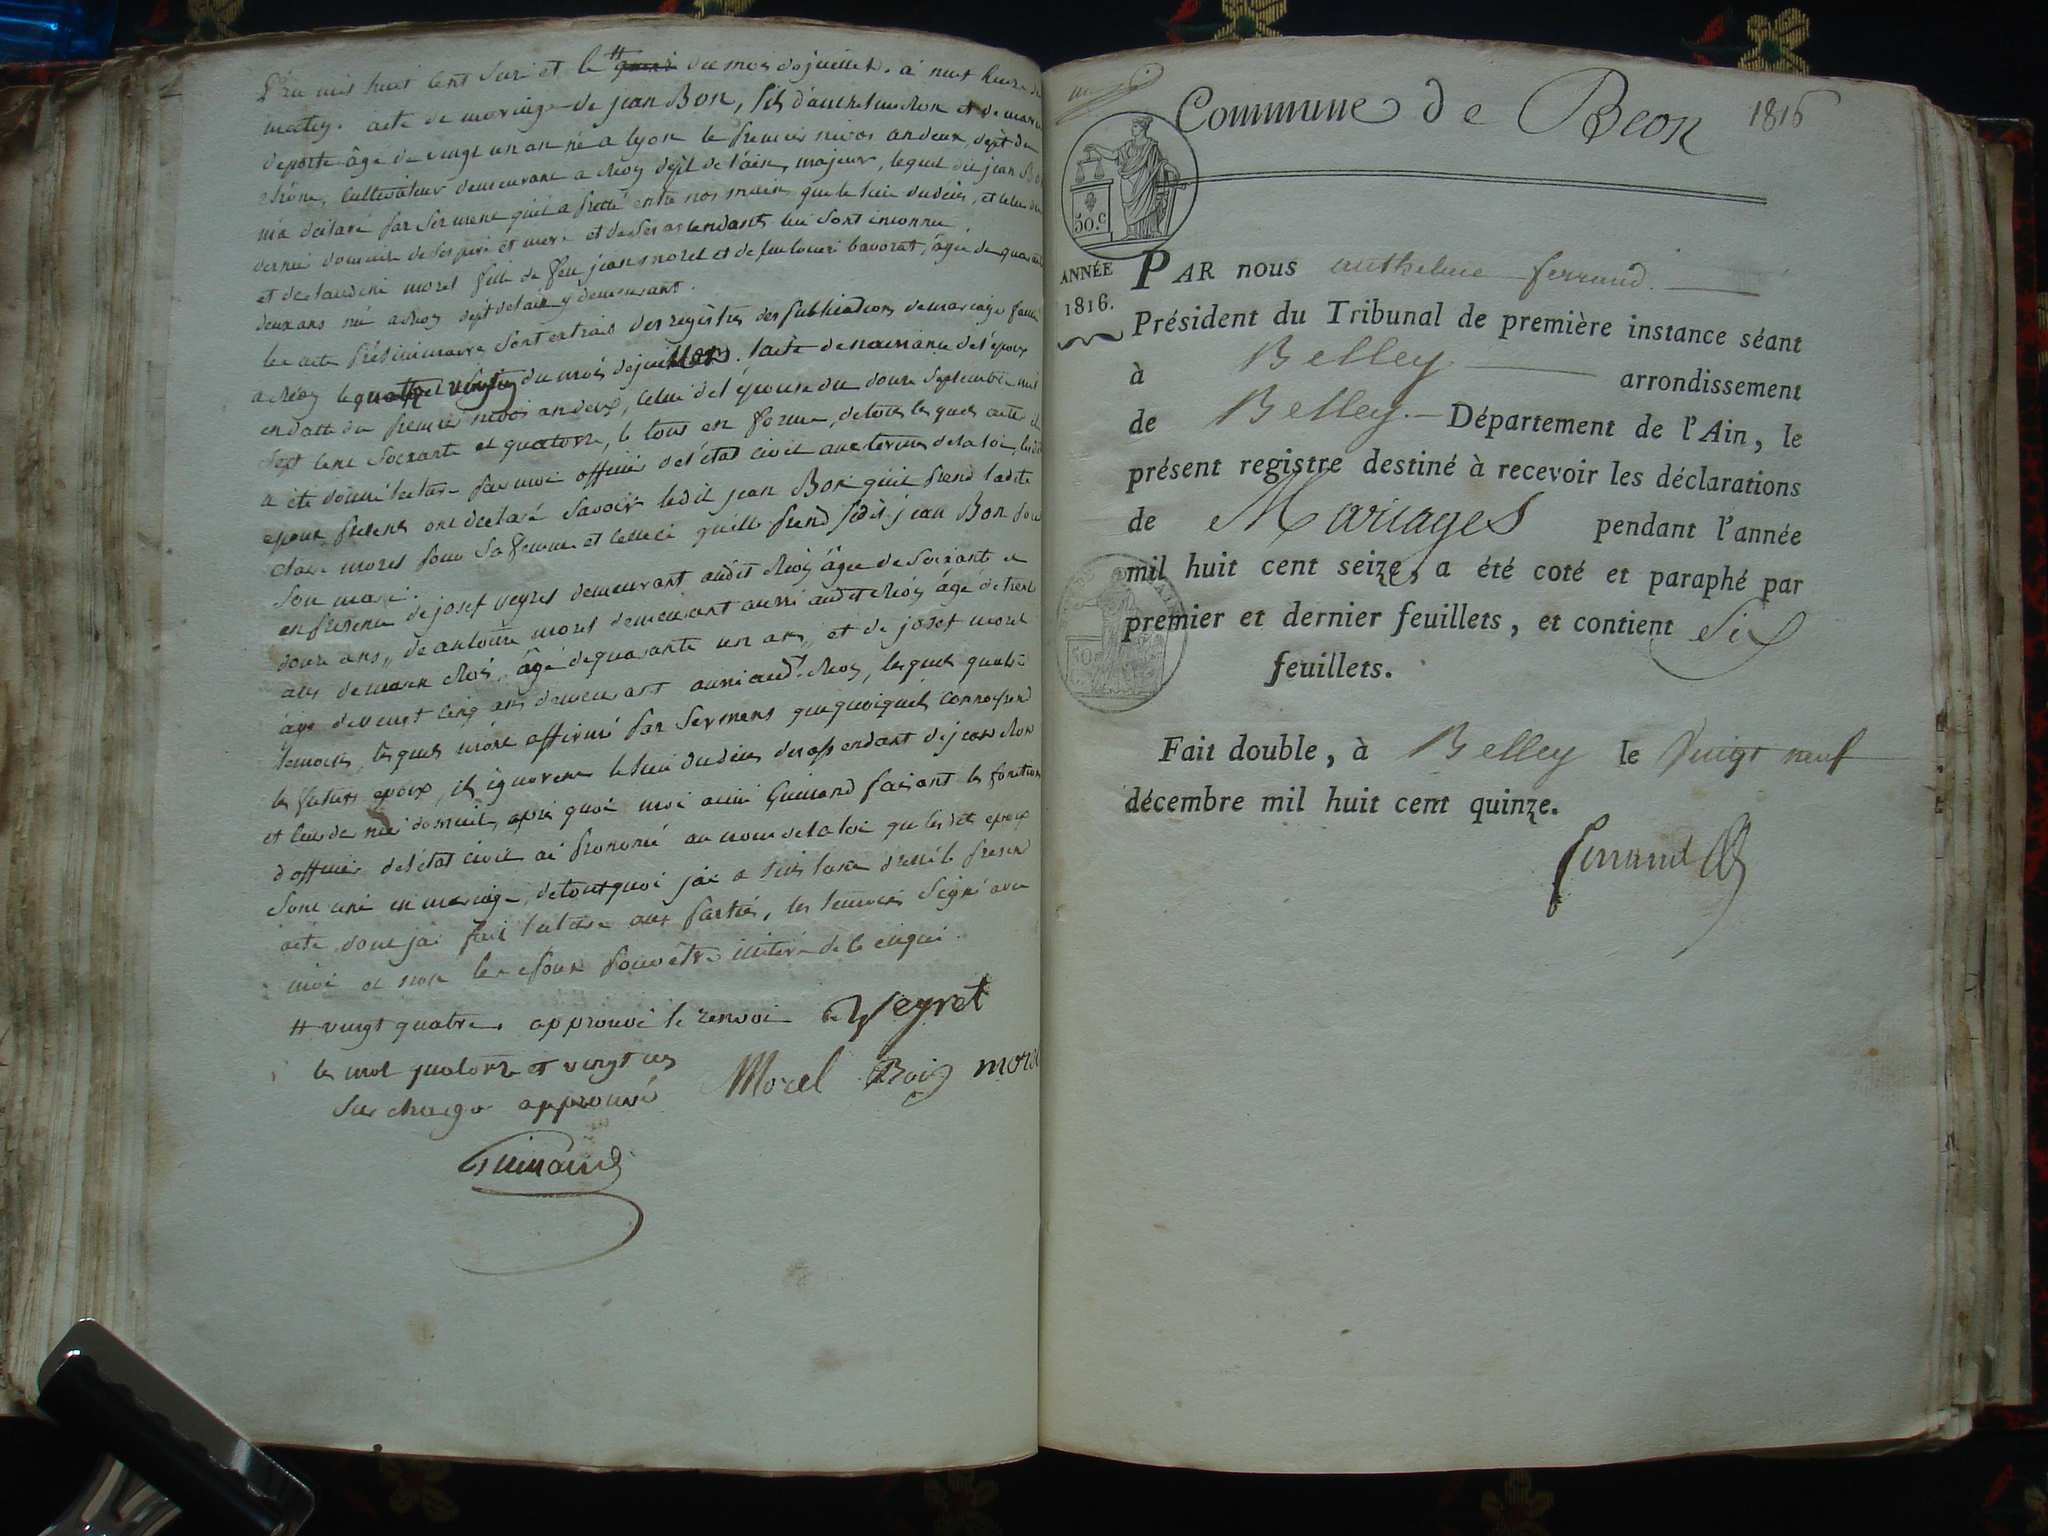 L'an mil huit cent seize et le # du mois de juillet. à neuf heures du
matin. acte de mariage de jean Bon, fils d'anthelme Bon et de marie
deporte âgé de vingt un an né a lyon le premier nivos an deux, dept du
rhône, cultivateur demeurant a Béon dept de l'ain, majeur, lequel dit jean Bon
m'a déclaré par serment qu'il a prêté entre nos mains que le lieu du décès, et celui du
dernier domicile de ses père et mere et de ses ascendants lui sont inconnu
et de claudine morel fille de feu jean morel et de feu louise bavorat, âgée de quarante
deux ans née a Béon dept de l'ain y demeurant.
les acte préliminaires sont extrais des registres des publications de mariage faittes
a Béon le quatorze et vingt un du mois de juillet. l'acte de naissance de l'époux
en datte du premier nivos an deux, celui de l'épouse du douze septembre mil
sept cent soixante et quatorze, le tous en forme, de tous lesquels actes il
a été donné lecture par moi officier de l'état civil aux termes de la loi, lesdits
epoux présents ont déclaré savoir ledit jean Bon qu'il prend ladite
claudine morel pour sa femme et celle ci qu'elle prend ledit jean Bon pour
son mari.
en présence de josef veyret demeurant audit Béon âgé de soixante et
douze ans, de antoine morel demeurant aussi audit Béon âgé de trente
ans de marin Boij, âgé de quarante un ans, et de josef morel
âgé de vingt cinq ans demeurant aussi aud. Béon, lesquels quatre
temoins, lesquels m'ont affirmé par serment que quoiquils connoissent
les futurs epoux, ils ignorent le lieu du décès des ascendant de jean Bon
et leur dernié domicile, après quoi moi aimé Guinand faisant les fonctions
d'officier de l'état civil ai prononcé au nom de la loi que lesdits epoux
sont unis en mariage, de tout quoi j'ai a l'instant dressé le present
acte, dont j'ai fait lecture aux parties, les temoins signé avec
moi et non les epoux pour être illiteré de ce enquis
# vingt quatre. approuvé le renvoi Veyret
les mot quatorze et vingt un Morel Boij morel
sur chargé approuvé
Guinand
Commune de Beon 1816
50.c
ANNÉE
1816.
PAR nous anthelme ferrand.
Président du Tribunal de première instance séant
à Belley arrondissement
de Belley. Département de l'Ain, le
présent registre destiné à recevoir les déclarations
de Mariages pendant l'année
mil huit cent seize, a été coté et paraphé par
premier et dernier feuillets, et contient Six
feuillets.
Fait double, à Belley le vingt neuf
décembre mil huit cent quinze.
ferrand